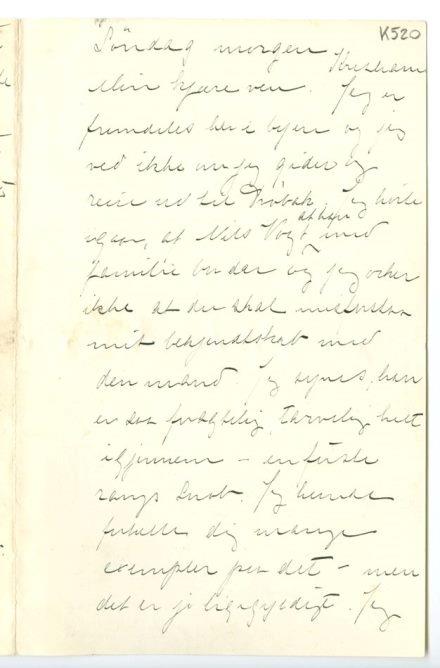 K520
Söndag morgen
Kristiania
Min kjære ven. Jeg er
fremdeles her i byen og jeg
ved ikke om jeg gider og
reise ud til Drøbak. Jeg hørte
igaar, at Nils Vogt, med
familie bor der og jeg
ikke at der skal
mit bekjendtskab med
den mand. Jeg synes, han
er saa tarvelig helt
igjennem – en første
rangs Snob. Jeg kunde
fortælle dig mange
exempler paa det – men
det er jo ligegyldigt. Jeg